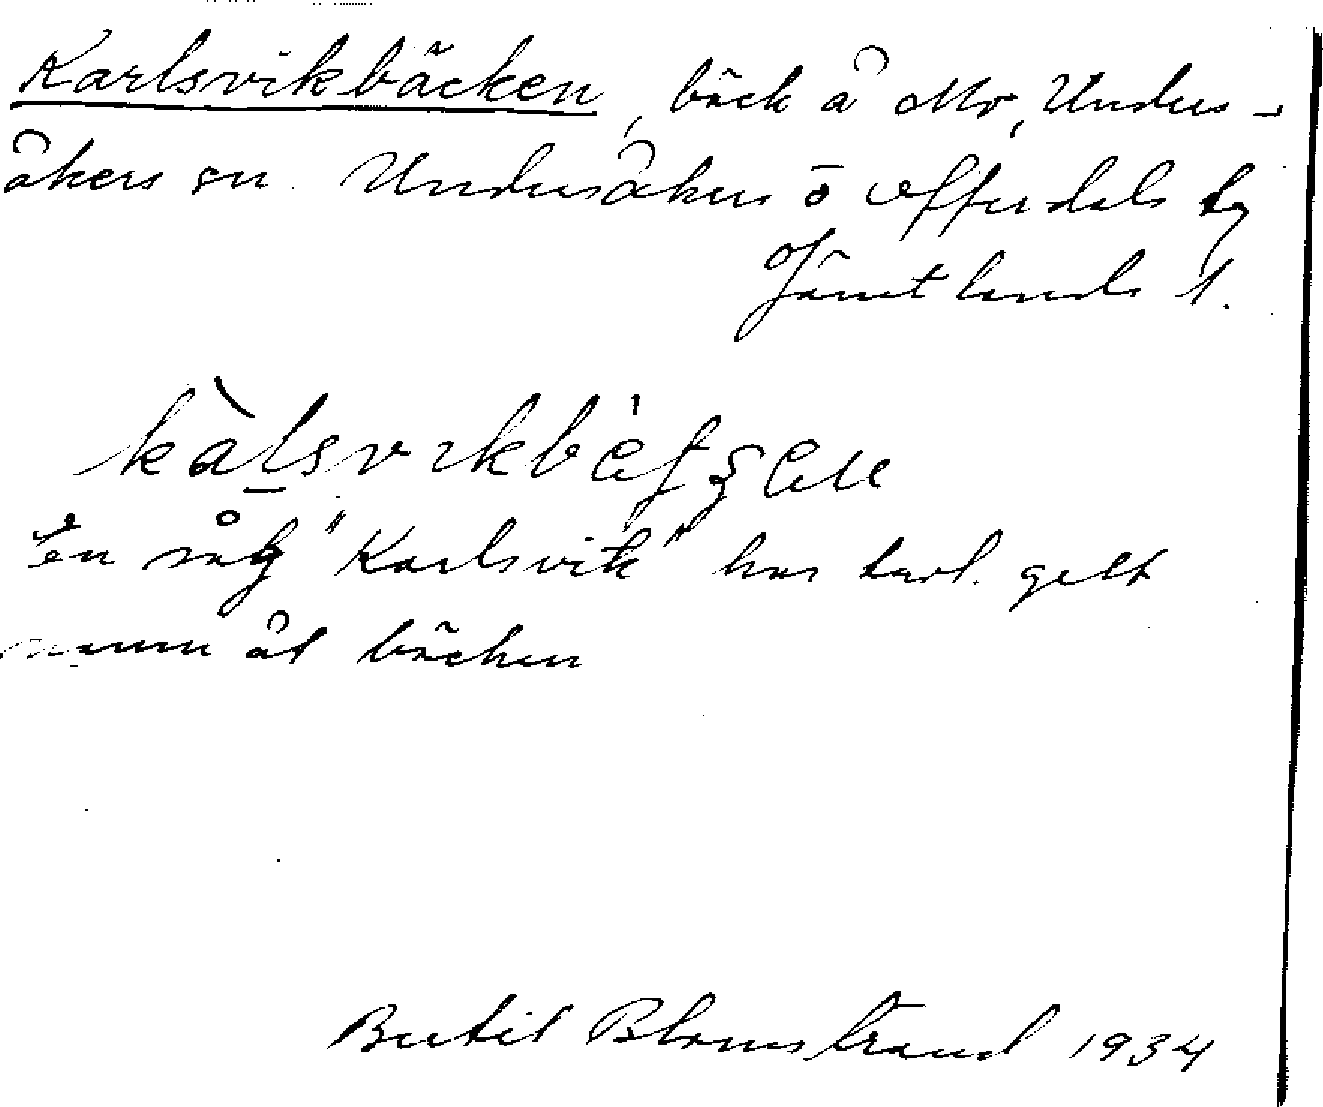 Karlsvikbäcken, bäck å Mo, Unders-
åkers sn. Undersåkers o Offerdals tg
Jämtlands l.
En såg "Karlsvik" har trol. gett
namn åt bäcken
Bertil Blomstrand 1934